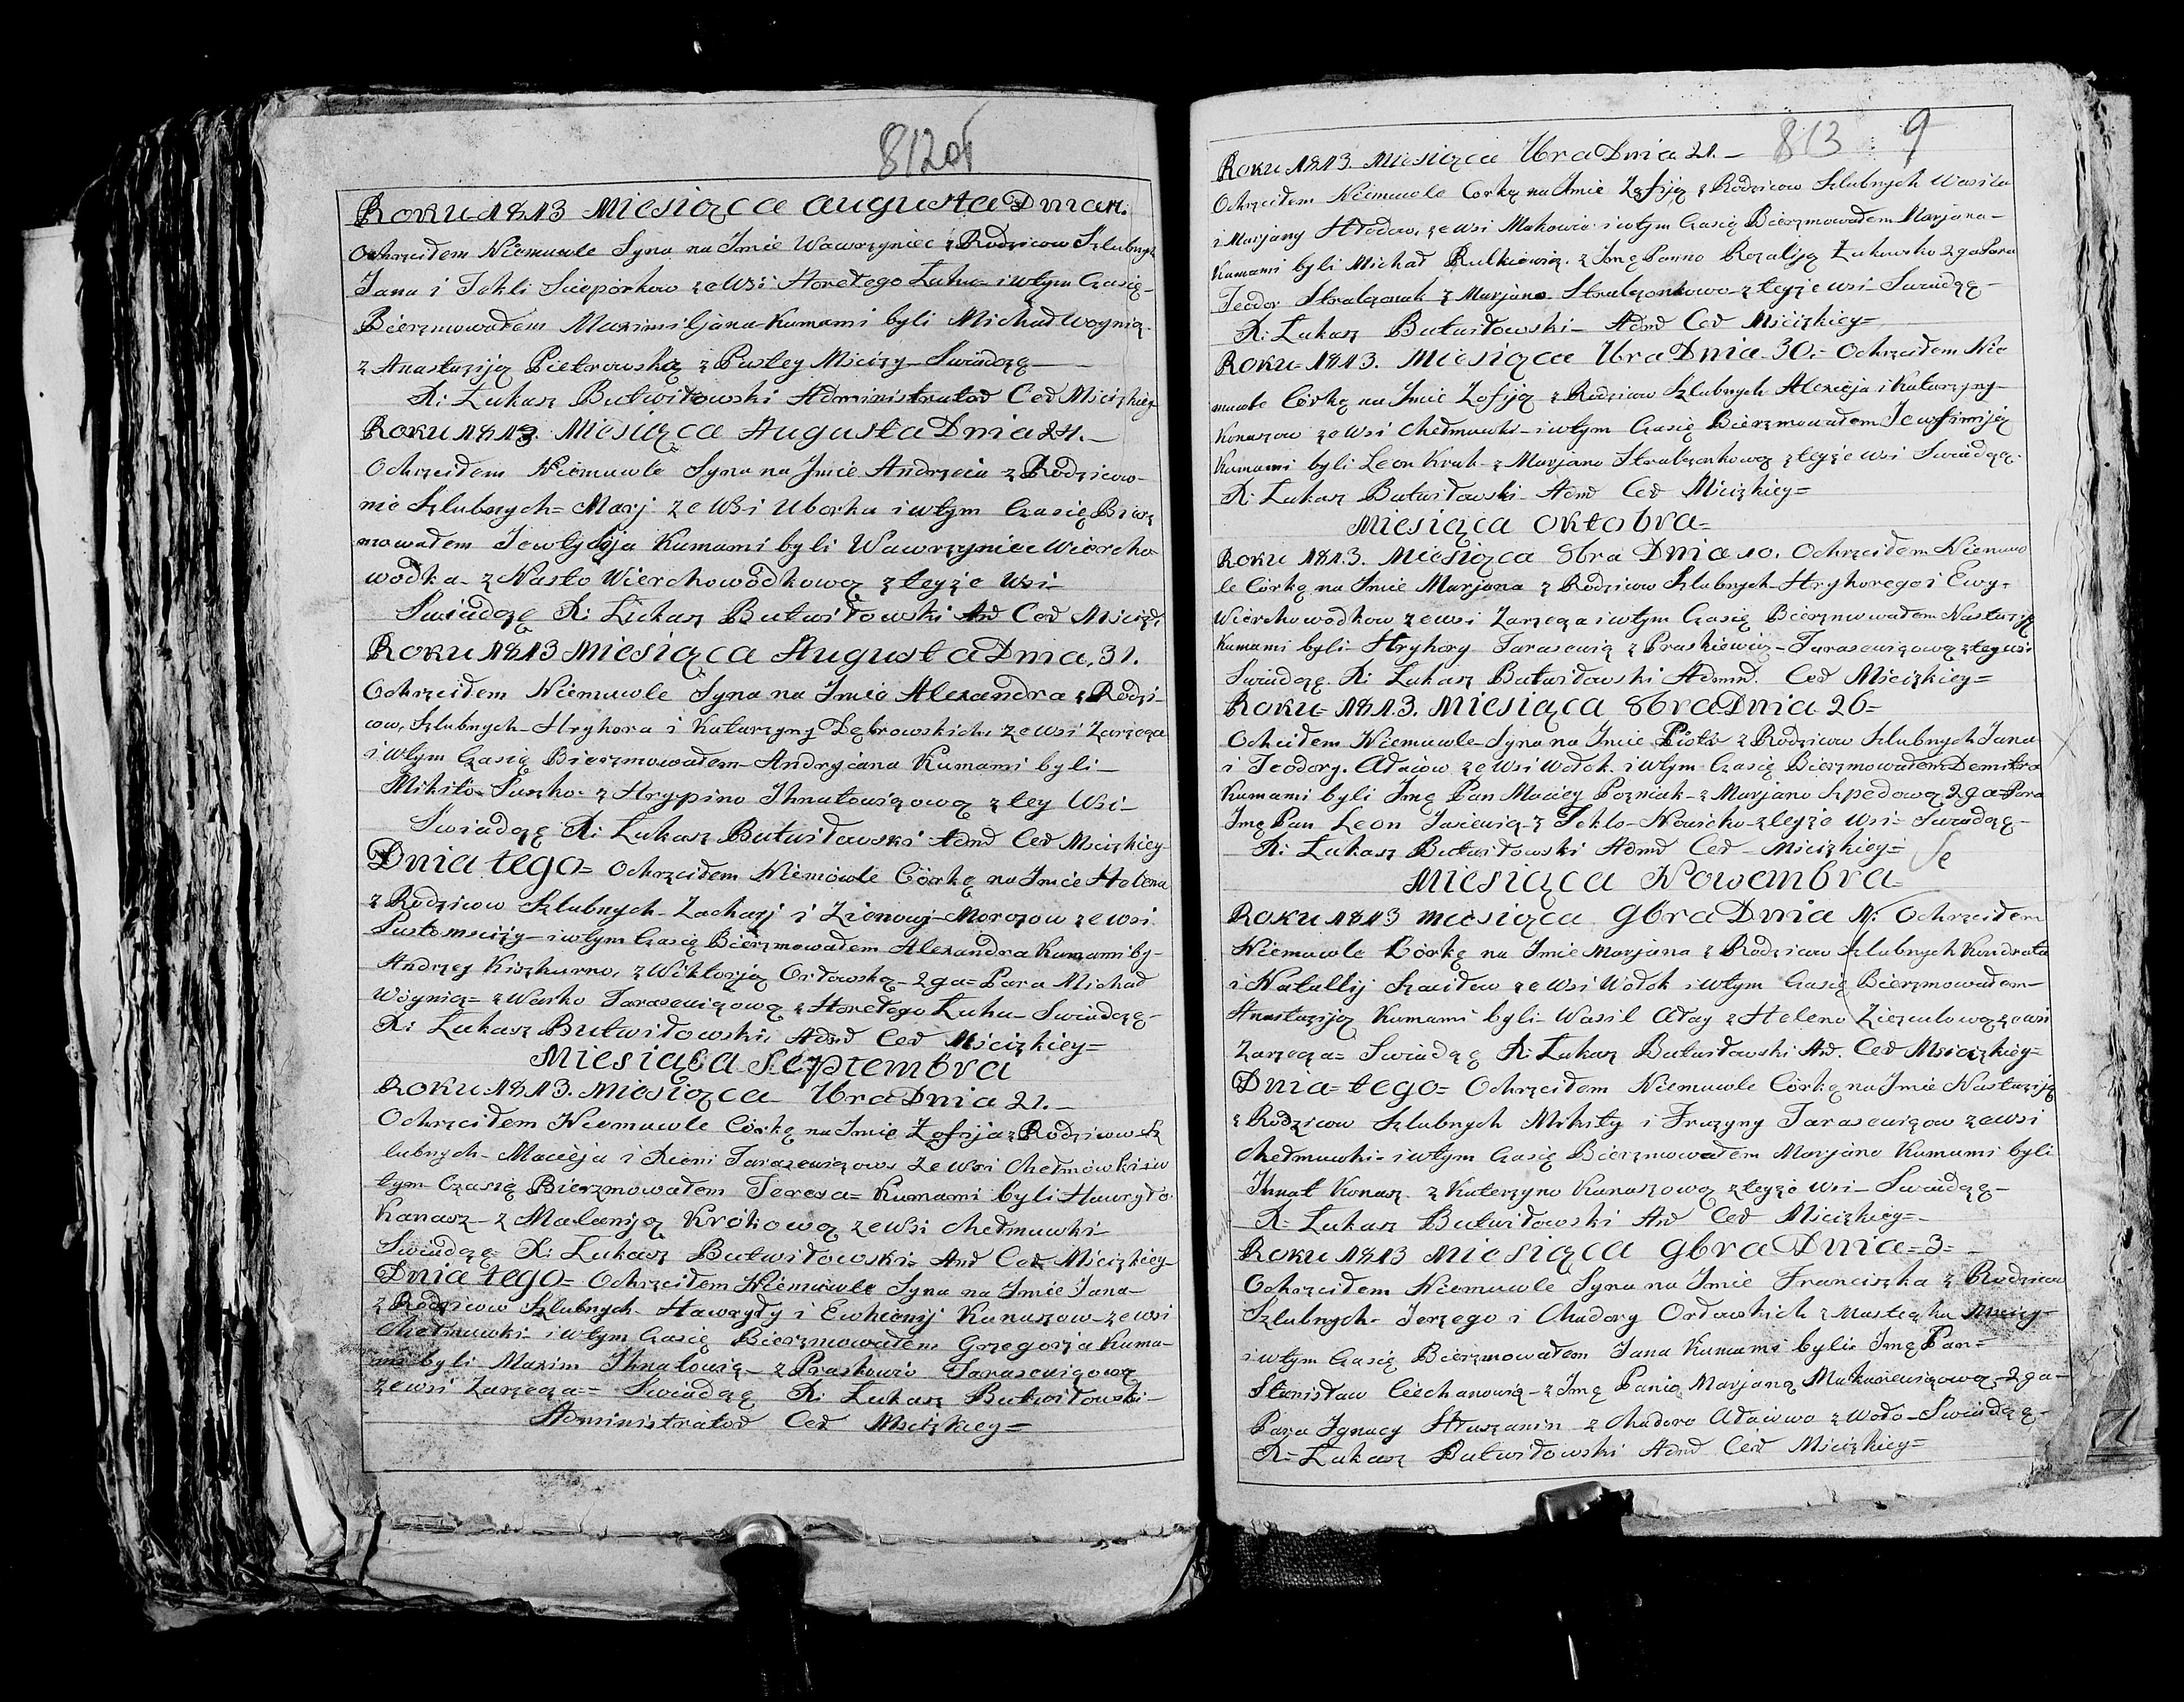 812 об
Roku 1813 Miesiąca augusta Dnia
Ochrzciłem Niemuwle Syna na Jmie Wawrzyniec z Rodzicow Szlubnych
Jana i Tekli Scieporkow ze Wsi Horełego Łuhu i wtym Czasię
Bierzmowałem Maximiljana Kumami byli Michał Woynią
z Anastazyją Pietrowską z Pustey Mścizy Swiadczę
X: Łukasz Butwiłowski Administrator Ced Mścizkiey
Roku 1813. Miesiąca Augusta Dnia 24.
Ochrzciłem Niemuwle Syna na Jmie Andrzeia z Rodzicow
nie Szlubnych = Marj ze Wsi Uborka i wtym Czasię Bierz
mowałem Kumami byli Wawrzyniec Wiercho
wodka z Nasto Wierchowodkową z teyże Wsi
Swiadczę X: Łukasz Butwiłowski Ad Ced Mścizk
Roku 1813 Miesiąca Augusta Dnia 31.
Ochrzciłem Niemuwle Syna na Jmie Alexandra z Rodzi-
cow, Szlubnych Hryhora i Katarzyny Dąbrowskich ze Wsi Zarzecza
i wtym Czasię Bierzmowałem Kumami byli
Mikiło Suszko z Hrypino Ihnatowiczową z tey Wsi
Swiadczę X: Łukasz Butwiłowski Admd Ced Mścizkiey
Dnia tego = Ochrzciłem Niemowle Córkę na Jmie Helena
z Rodzicow Szlubnych Zacharj i Zienowj Morozow ze Wsi
i wtym Czasię Bierzmowałem Alexandra Kumami by-
Andrzej Kiszkurno, z Wiktorją Orłowską 2ga = Para Michał
Woynią = z Tarasewiczową z Horełego Łuhu Swiadczę
X: Łukasz Butwiłowski, Admd Ced Mścizkiey =
Miesiąca Septembra
Roku 1813. Miesiąca 7bra Dnia 21.
Ochrzciłem Niemuwle Córkę na Jmie Zofija z Rodzicow Sz
lubnych Macieja i Xieni Tarasewiczow ze Wsi Chełmówki i w
tym Czasię Bierzmowałem Teresa = Kumami byli Hawryło
Kanasz z Malanyją Krókową ze Wsi Chełmuwki
Swiadczę = X: Łukasz Butwiłowski Ad Ced Mścizkiey
Dnia tego = Ochrzciłem Niemuwle Syna na Jmie Jana
z Rodzicow Szlubnych Hawryły i Ewhenij Kanaszow ze Wsi
Chełmuwki i wtym Czasię Bierzmowałem Grzegorza Kuma-
mi byli Maxim Ihnatowią z Praskowio Tarasewiczową
ze Wsi Zarzecza = Swiadczę X: Łukasz Butwiłowski
Administrator Ced Mścizkiey =
813 9
Roku 1813 Miesiąca 7bra Dnia 21.
Ochrzciłem Niemuwle Corkę na Jmie Zofiją z Rodzicow Szlubnych Wasila
i Marjany Hłodow, ze Wsi Makowia i wtym Czasię Bierzmowałem Marjana
Kumami byli Michał Rulkiewicz z Jmę Panno Rozaliją Łukowsko 2ga Para
Teodor Strałczonak z Marjano Strałczonkowo z teyże Wsi Swiadczę
X: Łukasz Butwiłowski Admd Ced Mścizkiey =
Roku 1813. Miesiąca 7bra Dnia 30. Ochrzciłem Nie
muwle Córkę na Jmie Zofiją z Rodzicow Szlubnych Alexieja i Katarzyny
Konaszow ze Wsi Chełmuwki i wtym Czasię Bierzmowałem Jewfimiją
Kumami byli Leon Kruk z Marjano Strałczonkową z teyże Wsi Swiadczę
X: Łukasz Butwiłowski Admd Ced Mścizkiey =
Miesiąca Oktobra =
Roku 1813. Miesiąca 8bra Dnia 10. Ochrzciłem Niemuw
le Córkę na Jmie Marjana z Rodzicow Szlubnych Hryhorego i Ewy
Wierchowodkow ze Wsi Zarzecza i wtym Czasię Bierzmowałem Nastazyją
Kumami byli Hryhory Tarasewią z Tarasewiczową z tey Wsi
Swiadczę X: Łukasz Butwiłowski Admd. Ced Mścizkiey =
Roku = 1813. Miesiąca 8bra Dnia 26 =
Ochciłem Niemuwle Syna na Jmie Piotr z Rodzicow Szlubnych Jana
i Teodory. Ałaiow ze Wsi Wołok i wtym Czasię Bierzmowałem Demitra
Kumami byli Jmę Pan Maciey Pozniak z Marjano Szpedową 2ga Para
Jmę Pan Leon Jasiewią z Teklo Nowicko z teyże Wsi = Swiadczę
X: Łukasz Butwiłowski Admd Ced Mścizkiey =
Miesiąca Nowembra
Roku 1813 Miesiąca 9bra Dnia 1: Ochrzciłem
Niemuwle Córkę na Jmie Marjana z Rodzicow Szlubnych Kondrata
i Natallij ze Wsi Wołok i wtym Czasię Bierzmowałem
Anastazyją Kumami byli Wasil Ałay z Heleno ze Wsi
Zarzecza = Swiadczę X: Łukasz Butwiłowski Ad. Ced Mścizkiey =
Dnia = tego = Ochrzciłem Niemuwle Córkę na Jmie Nastazyją
z Rodzicow Szlubnych Mikity i Fruzyny Tarasewiczow ze Wsi
Chełmuwki i wtym Czasię Bierzmowałem Marjano Kumami byli
Ihnat Konasz z Katerzyno Kanaszową z teyże Wsi Swiadczę
X: Łukasz Butwiłowski Ad Ced Mścizkiey =
Roku 1813 Miesiąca 9bra Dnia = 3 =
Ochrzciłem Niemuwle Syna na Jmie Franciszka z Rodzicow
Szlubnych Jerzego i Chadory Orłowskich z Masteczka Mscizy
i wtym Czasię Bierzmowałem Jana Kumami byli Jmę Pan =
Stanisław Ciechanowią z Jmę Panio Marjaną Makarewiczową 2ga
Para Ignacy Hłuszanin z Chadoro Ałaiowo z Woło Swiadczę
X: Łukasz Butwiłowski Admd Ced Mścizkiey =